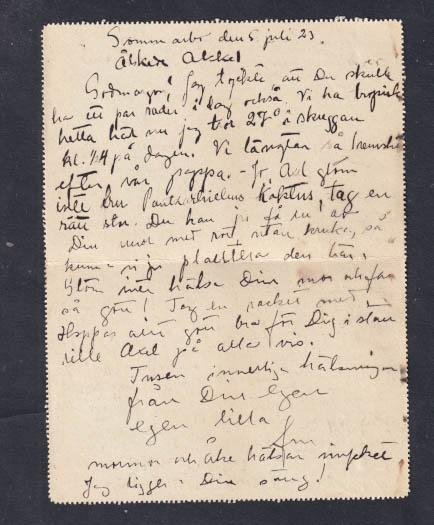 Sommarbo den 5 juli 23.
Älskade Akkel
Godmorgon! Jag tyckte att Du skulle
ha ett par rader i dag också. Vi ha tropisk
hetta här nu jag tor 27° i skuggan
kl. 1/4 på dagen. Vi längtar så
efter vår pappa. - Jo, Ack glöm
inte fru Kaktus, tag en
rätt stor. Du kan ju få en av
Din mor med rot utan kruka, så
kunna vi ju plantera den här.
Glöm inte hälsa Din mor
så gott! Jag en
Hoppas allt gott bra för Dig i stan
lille Axel på alla vis.
Tusen innerliga hälsningar
från Din egen
egen lilla
mormor och Åke hälsar mycket
Jag ligger i Din säng!